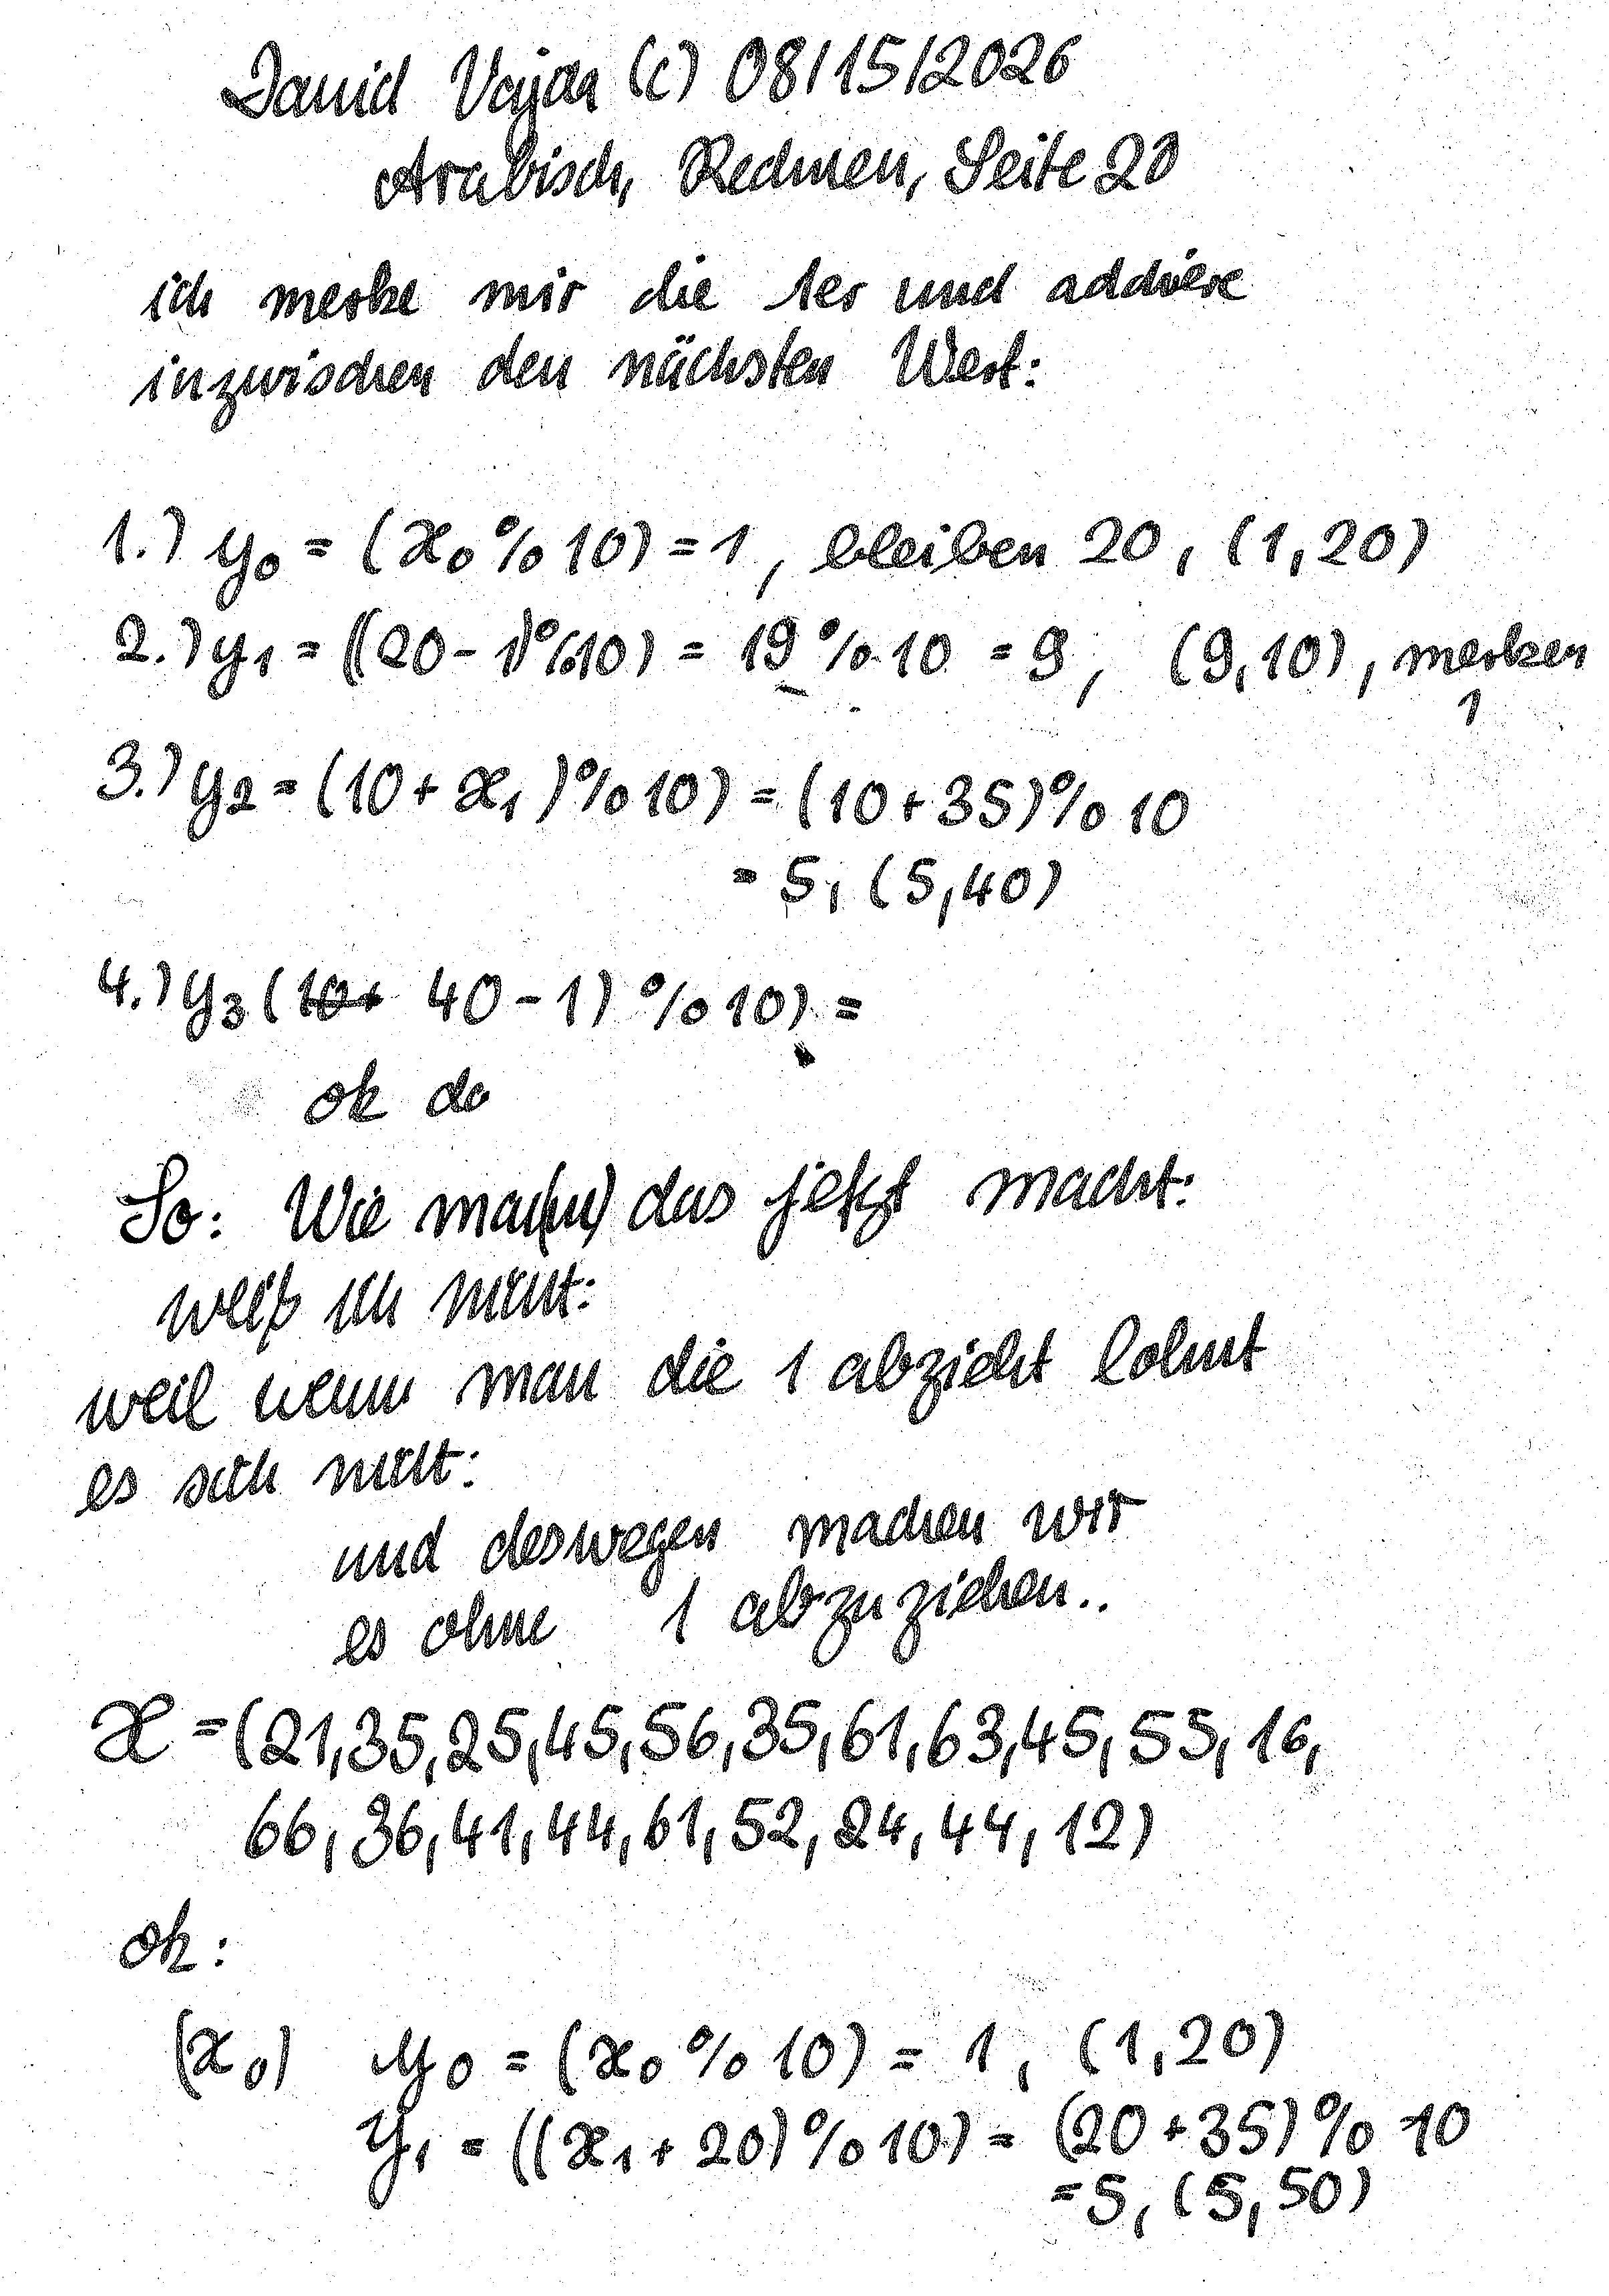 David Vajda (c) 08/15/2026
Arabisch, Rechnen, Seite 20
ich merke mir die 1er und addiere
inzwischen den nächsten Wert:
1.) y0 = (x0 % 10) = 1, bleiben 20, (1,20)
2.) y1 = ((20 - 1)%10) = 19 % 10 = 9, (9,10), merken
1
3.) y2 = (10 + x1)%10) = (10 + 35)% 10
= 5, (5,40)
4.) y3 (10+ 40 - 1) % 10) =
ok do
So: Wie ma(n) das jetzt macht:
weiß ich nicht:
weil wenn man die 1 abzieht lohnt
es sich nicht:
und deswegen machen wir
es ohne 1 abzuziehen..
x = (21,35,25,45,56,35,61,63,45,55,16,
66,36,41,44,61,52,24,44,12)
ok:
(x0) y0 = (x0 % 10) = 1, (1,20)
y1 = ((x1 + 20)%10) = (20 + 35)% 10
= 5, (5,50)